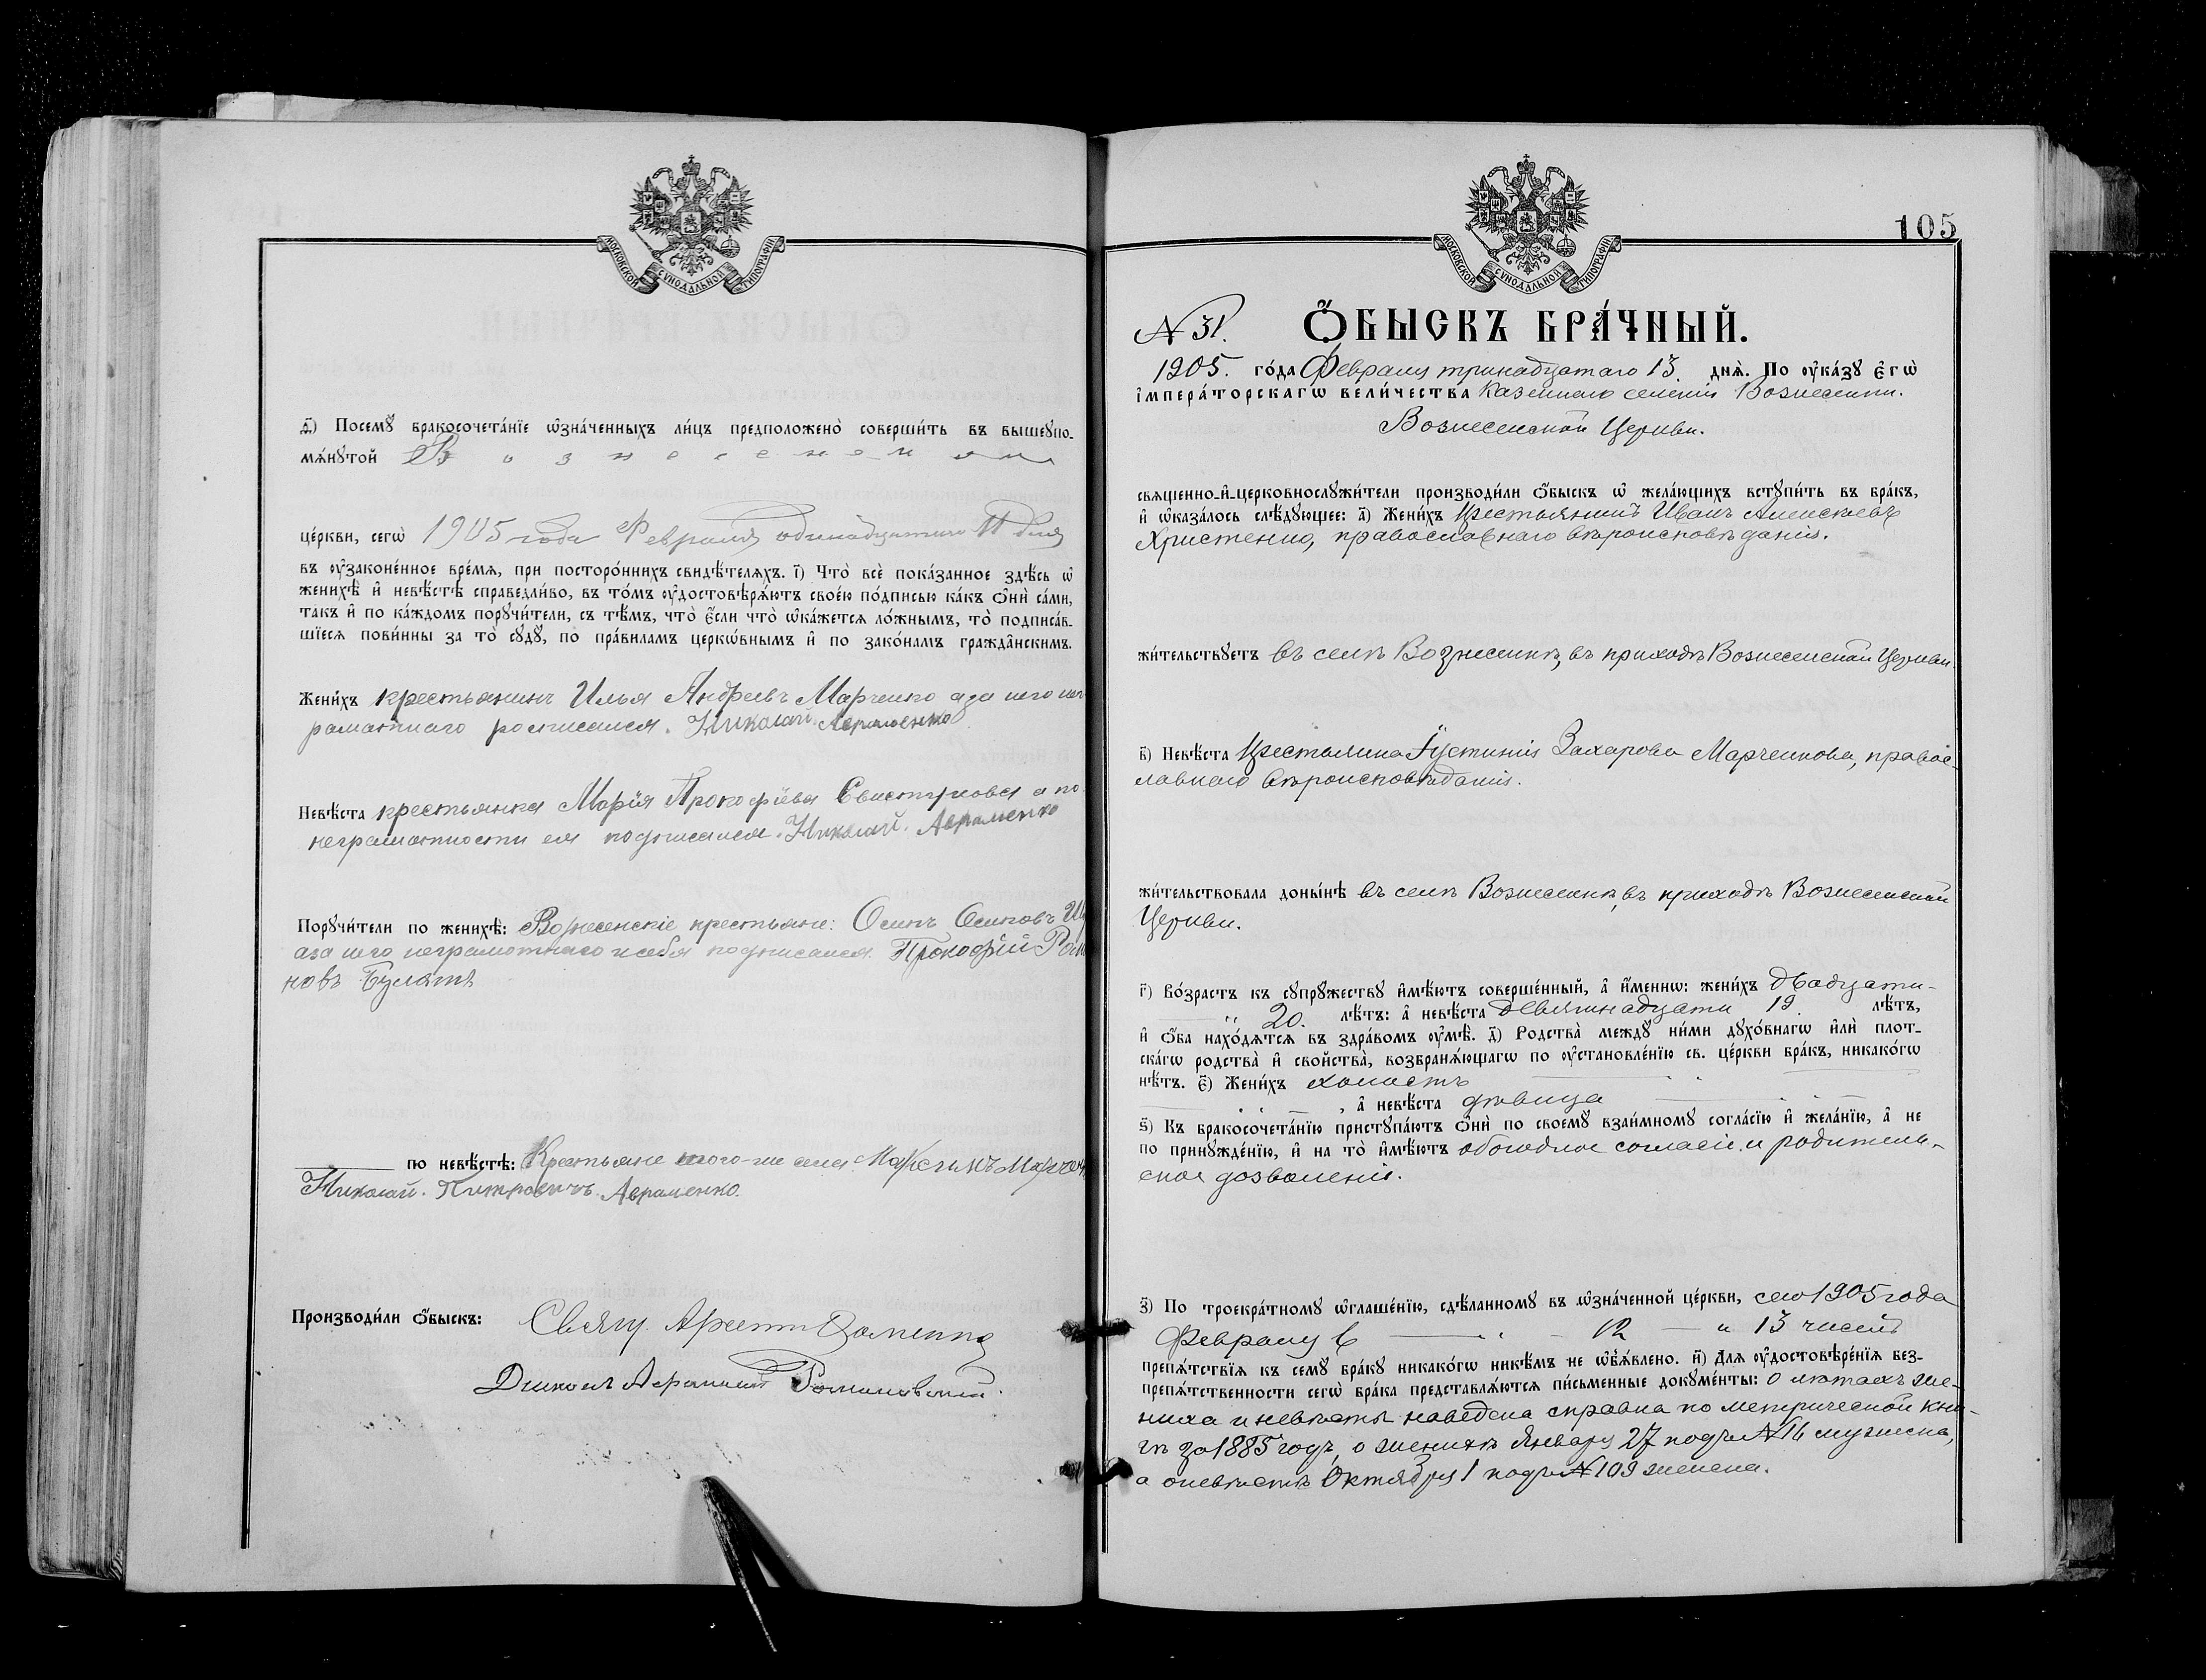 МОСКОВСКОЙ СѴНОДАЛЬНОЙ ТИПОГРАФІИ
д҃) Посемꙋ бракосочета́нїе ѡзна́ченныхъ ли́цъ предположено̀ соверши́ть въ вышеꙋпо-
мѧ́нꙋтой Вознесенской
це́ркви, сегѡ̀ 1905 года Февраля одинадцатаго 11 дня
въ ᲂу҆законе́нное вре́мѧ, при посторо́ннихъ свидѣ́телѧхъ. і҃) Что̀ всѐ пока́занное здѣ́сь ѡ҆
женихѣ̀ и҆ невѣ́стѣ справедли́во, въ то́мъ ᲂу҆достовѣрѧ́ютъ свое́ю по́дписью ка́къ ѻ҆нѝ са́ми,
такъ и҆ по ка́ждомъ порꙋчи́тели, съ тѣ́мъ, что̀ є҆́сли что̀ ѡ҆ка́жетсѧ ло́жнымъ, то̀ подписа́в-
шїесѧ пови́нны за то̀ сꙋдꙋ̀, по пра́виламъ церкѡ́внымъ и҆ по зако́намъ гражда́нскимъ.
Жени́хъ крестьянинъ Илья Андреевъ Марченко а за него нег-
рамотнаго росписался. Николай Авраменко
Невѣ́ста крестьянка Марія Прокофіева Свистунова а по
неграмотности ея подписался. Николай. Авраменко
Порꙋчи́тели по женихѣ̀: Вознесенскіе крестьяне: Осипъ Осиповъ
а за него неграмотнаго и себя подписался Прокофій Рома
новъ Булатъ
по невѣ́стѣ: Крестьяне того-же села Максимъ Марчен
Николай. Питровичъ. Авраменко.
Производи́ли ѻ҆́быскъ: Священ.
Діаконъ Романовскій.
105
МОСКОВСКОЙ СѴНОДАЛЬНОЙ ТИПОГРАФІИ
N 31. Ѻ҆́БЫСКЪ БРА́ЧНЫЙ.
1905. го́да Февраля тринадцатаго 13 днѧ̀. По ᲂу҆ка́зꙋ є҆гѡ̀
і҆мпера́торскагѡ вели́чества казеннаго селенія Вознесенки.
Вознесенской Церкви.
свѧщенно-и҆-церковнослꙋжи́тели производи́ли ѻ҆́быскъ ѡ҆ жела́ющихъ встꙋпи́ть въ бра́къ,
и҆ ѡ҆каза́лось слѣ́дꙋющее: а҃) Жени́хъ Крестьянинъ Иванъ Алексѣевъ
Христенко, православнаго вѣроисповѣданія.
жи́тельствꙋетъ въ селѣ Вознесенкѣ, въ приходѣ Вознесенской Церкви.
в҃) Невѣ́ста Крестьянка Іустинія Захарова Марченкова, правос-
лавнаго вѣроисповѣданія.
жи́тельствовала доны́нѣ въ селѣ Вознесенкѣ, въ приходѣ Вознесенской
Церкви.
г҃) Во́зрастъ къ сꙋпрꙋ́жествꙋ и҆мѣ́ютъ соверше́нный, а҆ и҆́меннѡ: жени́хъ двадцати-
20. лѣ́тъ: а҆ невѣ́ста девятнадцати 19. лѣ́тъ,
и҆ ѻ҆́ба нахо́дѧтсѧ въ здра́вомъ ᲂу҆мѣ̀. д҃) Родства̀ междꙋ ни́ми дꙋхо́внагѡ и҆лѝ плот-
ска́гѡ родства̀ и҆ свойства̀, возбранѧ́ющагѡ по ᲂу҆становле́нїю св. це́ркви бра́къ, никако́гѡ
нѣ́тъ. є҃) Жени́хъ холостъ
, а҆ невѣ́ста дѣвица
ѕ҃) Къ бракосочета́нїю пристꙋпа́ютъ ѻ҆нѝ по своемꙋ̀ взаи́мномꙋ согла́сїю и҆ жела́нїю, а҆ не
по принꙋжде́нїю, и҆ на то̀ и҆мѣ́ютъ обоюдное согласіе и родитель-
ское дозволеніе.
з҃) По троекра́тномꙋ ѡ҆глаше́нїю, сдѣ́ланномꙋ въ ѡ҆зна́ченной це́ркви, сего 1905 года
Февраля 6 — 12 — и 13 чиселъ
препѧ́тствїѧ къ семꙋ̀ бра́кꙋ никако́гѡ никѣ́мъ не ѡ҆бъѧ́влено. и҃) Длѧ ᲂу҆достовѣре́нїѧ без-
препѧ́тственности сегѡ̀ бра́ка представлѧ́ютсѧ пи́сьменные докꙋме́нты: о лѣтахъ же-
ниха и невѣсты наведена справка по метрической кни-
гѣ за 1885 годъ, о женихѣ Января 27 подъ N 16 мужеска,
а о невѣстѣ Октября 1 подъ N 109 женска.